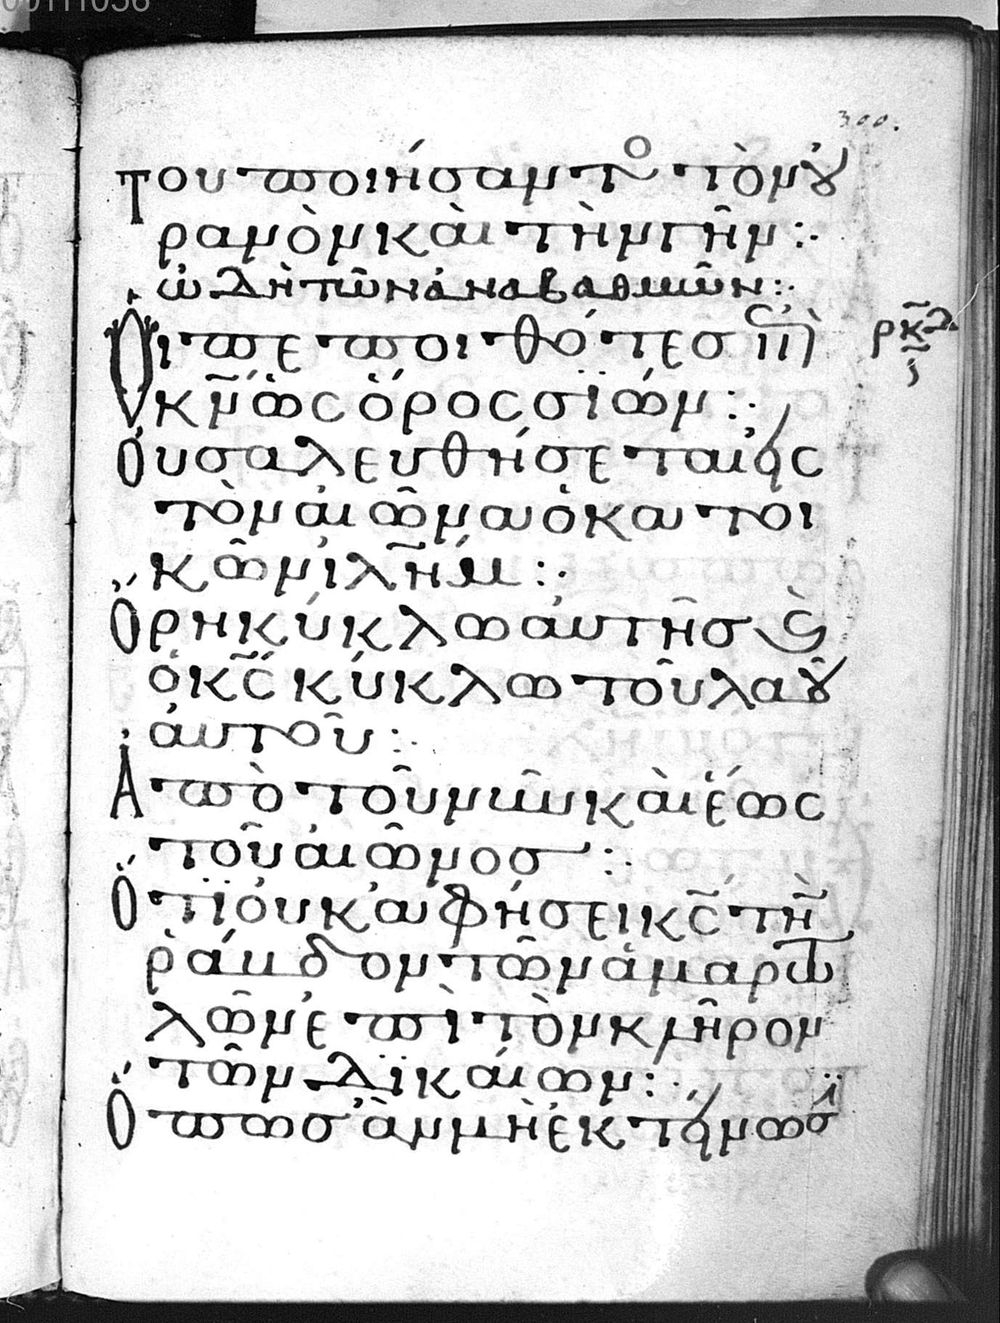 00111056
300.
του ποιήσαντο τὸν οὐ
ρανὸν καὶ τὴν γῆν :·
ὠδὴ τῶν ἀναβαθμῶν :·
ρκδ
Οἱ πεποιθότες ἐπὶ
κ̅ν̅ ὡς ὄρος σϊών :·
Οὐ σαλευθήσεται εἰς
τὸν αἰῶνα ὁ κατοι
κῶν ἰλ̅ημ :·
Ὄρη κύκλω αὐτῆς καὶ
ὁ κ̅ς̅ κύκλω τοῦ λαοῦ
αὐτοῦ :·
Ἀπὸ τοῦ νῦν καὶ ἕως
τοῦ αἰῶνος :·
Ὅτϊ οὐκ ἀφήσει κ̅ς̅ τὴν
ῥάβδον τῶν ἁμαρτω
λῶν ἐπὶ τὸν κλῆρον
τῶν δϊκαίων :·
Ὅπως ἂν μὴ ἐκτείνωσϊ